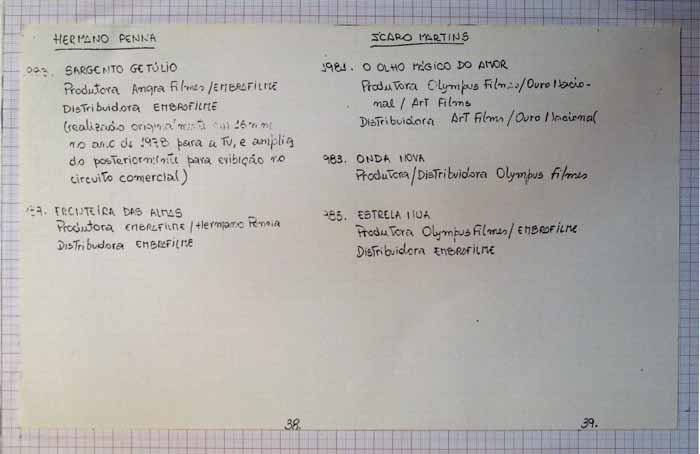 HERMANO PENNA
983. SARGENTO GETÚLIO
Produtora Angra Filmes/EMBRAFILME
Distribuidora EMBRAFILME
(realizado originalmente em 16mm
no ano de 1978 para a TV, e amplia
do posteriormente para exibição no
circuito comercial)
987. FRONTEIRA DAS ALMAS
Produtora EMBRAFILME/Hermano Penna
Distribudora EMBRAFILME
38.
ÍCARO MARTINS
1981. O OLHO MÁGICO DO AMOR
Produtora Olympus Filmes/Ouro Nacio-
nal / Art Films
Distribuidora Art Films/Ouro Nacional
983. ONDA NOVA
Produtora/Distribuidora Olympus Filmes
985. ESTRELA NUA
Produtora Olympus Filmes/EMBRAFILME
Distribuidora EMBRAFILME
39.